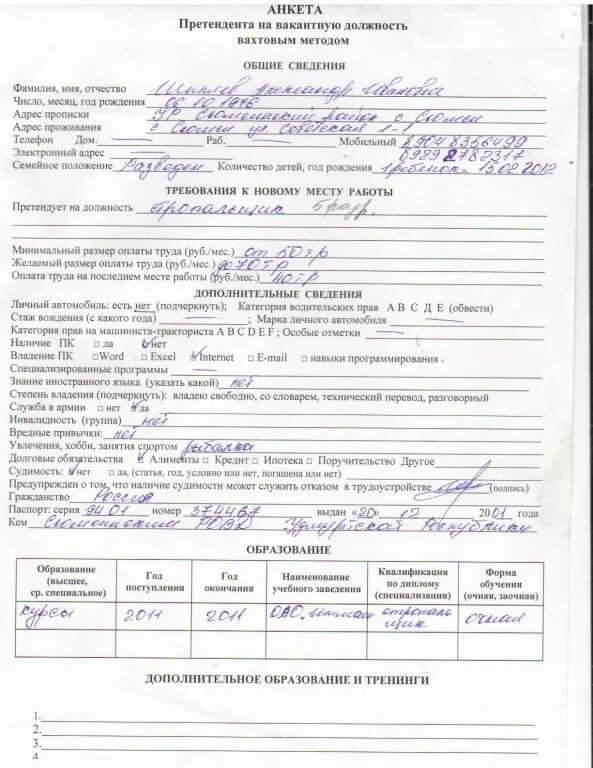 АНКЕТА
Претендента на вакантную должность
вахтовым методом
ОБЩИЕ СВЕДЕНИЯ
Фамилия, имя, отчество Шиляев Александр Иванович
Число, месяц, год рождения 06.10.1976
Адрес прописки УР Сюмсинский район с. Сюмси
Адрес проживания с Сюмси ул. Советская 1-1
Телефон Дом. — Раб. — Мобильный 8904 8356499
Электронный адрес — 8929 2782317.
Семейное положение Разведен Количество детей, год рождения 1 ребенок 15.02.2012
ТРЕБОВАНИЯ К НОВОМУ МЕСТУ РАБОТЫ
Претендует на должность стропальщик 5 разр.
Минимальный размер оплаты труда (руб./мес.) от 50 тр
Желаемый размер оплаты труда (руб./мес.) до 70 тр
Оплата труда на последнем месте работы (руб./мес.) 40 тр
ДОПОЛНИТЕЛЬНЫЕ СВЕДЕНИЯ
Личный автомобиль: есть нет (подчеркнуть); Категория водительских прав А В С Д Е (обвести)
Стаж вождения (с какого года) — ; Марка личного автомобиля —
Категория прав на машиниста-тракториста A B C D E F ; Особые отметки —
Наличие ПК □ да ☑ нет
Владение ПК □ Word □ Excel ☑ Internet □ E-mail □ навыки программирования
Специализированные программы —
Знание иностранного языка (указать какой) нет
Степень владения (подчеркнуть): владею свободно, со словарем, технический перевод, разговорный
Служба в армии □ нет ☑ да
Инвалидность (группа) нет
Вредные привычки: нет
Увлечения, хобби, занятия спортом рыбалка
Долговые обязательства ☑ Алименты □ Кредит □ Ипотека □ Поручительство Другое
Судимость: ☑ нет □ да, (статья, год, условно или нет, погашена или нет)
Предупрежден о том, что наличие судимости может служить отказом в трудоустройстве (подпись)
Гражданство Россия
Паспорт: серия 9401 номер 374467 выдан «20» 12 2001 года
Кем Сюмсинским РОВД Удмуртской Республики
ОБРАЗОВАНИЕ
Образование (высшее, ср. специальное) Год поступления Год окончания Наименование учебного заведения Квалификация по диплому (специализация) Форма обучения (очная, заочная)
курсы 2011 2011 ОАО стропальщик очная
ДОПОЛНИТЕЛЬНОЕ ОБРАЗОВАНИЕ И ТРЕНИНГИ
1.
2.
3.
4